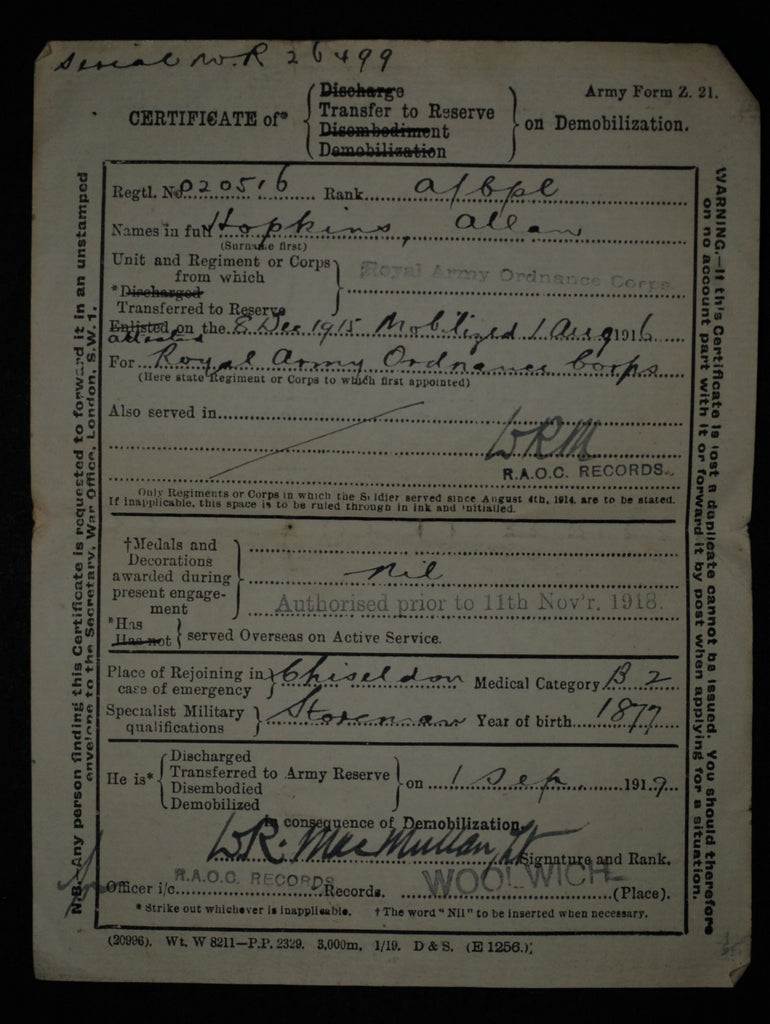 Serial No. R 26499
Army Form Z. 21.
CERTIFICATE of* { Discharge
Transfer to Reserve
Disembodiment
Demobilization } on Demobilization.
Regtl. No. 020516 Rank A/Cpl
Names in full Hopkins, Allan
(Surname first)
Unit and Regiment or Corps
from which
*Discharged
Transferred to Reserve
Royal Army Ordnance Corps
Enlisted on the 8 Dec 1915 Mobilized 1 Aug 1916
attested
For Royal Army Ordnance Corps
(Here state Regiment or Corps to which first appointed)
Also served in
WRM
R.A.O.C. RECORDS.
Only Regiments or Corps in which the Soldier served since August 4th, 1914, are to be stated.
If inapplicable, this space is to be ruled through in ink and initialled.
†Medals and
Decorations
awarded during
present engage-
ment
Nil
Authorised prior to 11th Nov'r. 1918.
*Has
Has not } served Overseas on Active Service.
Place of Rejoining in
case of emergency } Chiseldon Medical Category B 2
Specialist Military
qualifications } Storeman Year of birth 1877
He is* { Discharged
Transferred to Army Reserve
Disembodied
Demobilized } on 1 Sep. 1919
in consequence of Demobilization.
W R. MacMullan, Lt Signature and Rank.
Officer i/c R.A.O.C. RECORDS Records. WOOLWICH (Place).
* Strike out whichever is inapplicable. † The word "Nil" to be inserted when necessary.
(20996). Wt. W 8211—P.P. 2329. 3,000m. 1/19. D & S. (E 1256.);
N.B.—Any person finding this Certificate is requested to forward it in an unstamped
envelope to the Secretary, War Office, London, S.W. 1.
WARNING.—If this Certificate is lost a duplicate cannot be issued. You should therefore
on no account part with it or forward it by post when applying for a situation.